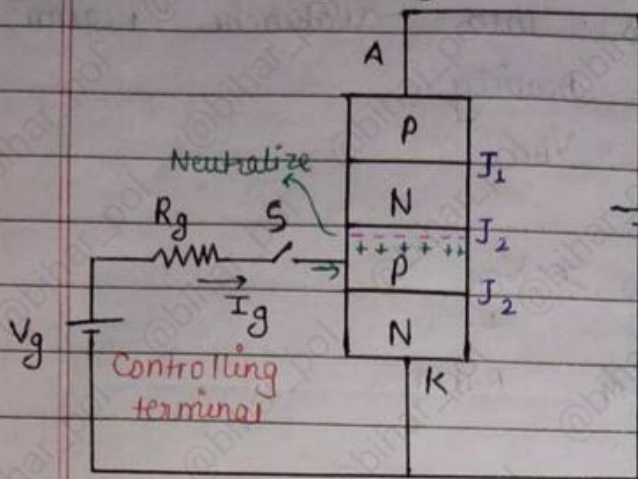 A
P
J1
Neutralize
N
Rg
S
J2
+ + + + ++
P
Ig
J2
Vg
N
Controlling
terminal
K
@bihar_pol